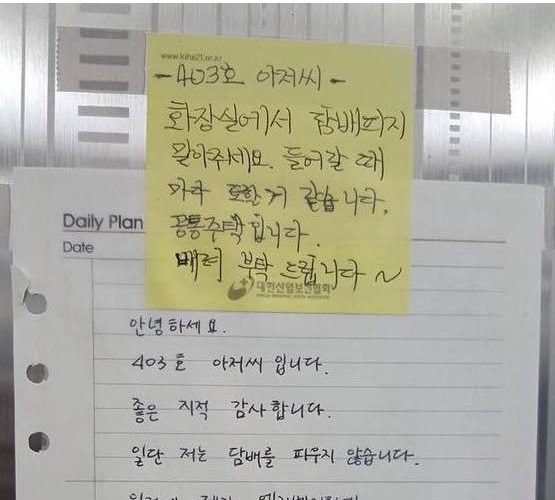 www.kiha21.or.kr
-403호 아저씨-
화장실에서 담배피지
말아주세요. 들어갈 때
마다 토할거 같습니다.
공통주택입니다.
배려 부탁 드립니다~
대한산업보건협회
Daily Plan
Date
안녕하세요.
403호 아저씨입니다.
좋은 지적 감사합니다.
일단 저는 담배를 파우지 않습니다.